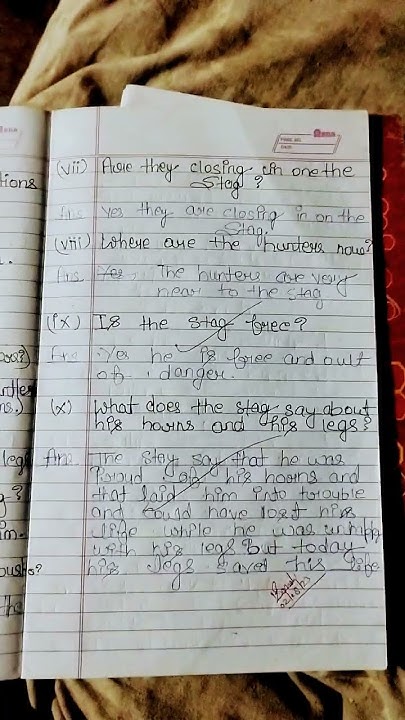 Rona
tions
(vii) Are they closing in one the
Stag ?
Ans yes they are closing in on the
Stag.
(viii) Where are the hunters now?
Ans Yes, The hunters are very
near to the stag
(ix) Is the stag free?
Ans Yes he is free and out
of danger.
(x) What does the stag say about
his horns and his legs?
Ans The stag say that he was
Proud of his horns and
that laid him into trouble
and could have lost his
life while he was
with his legs But today
his legs saved his life
02/08/23